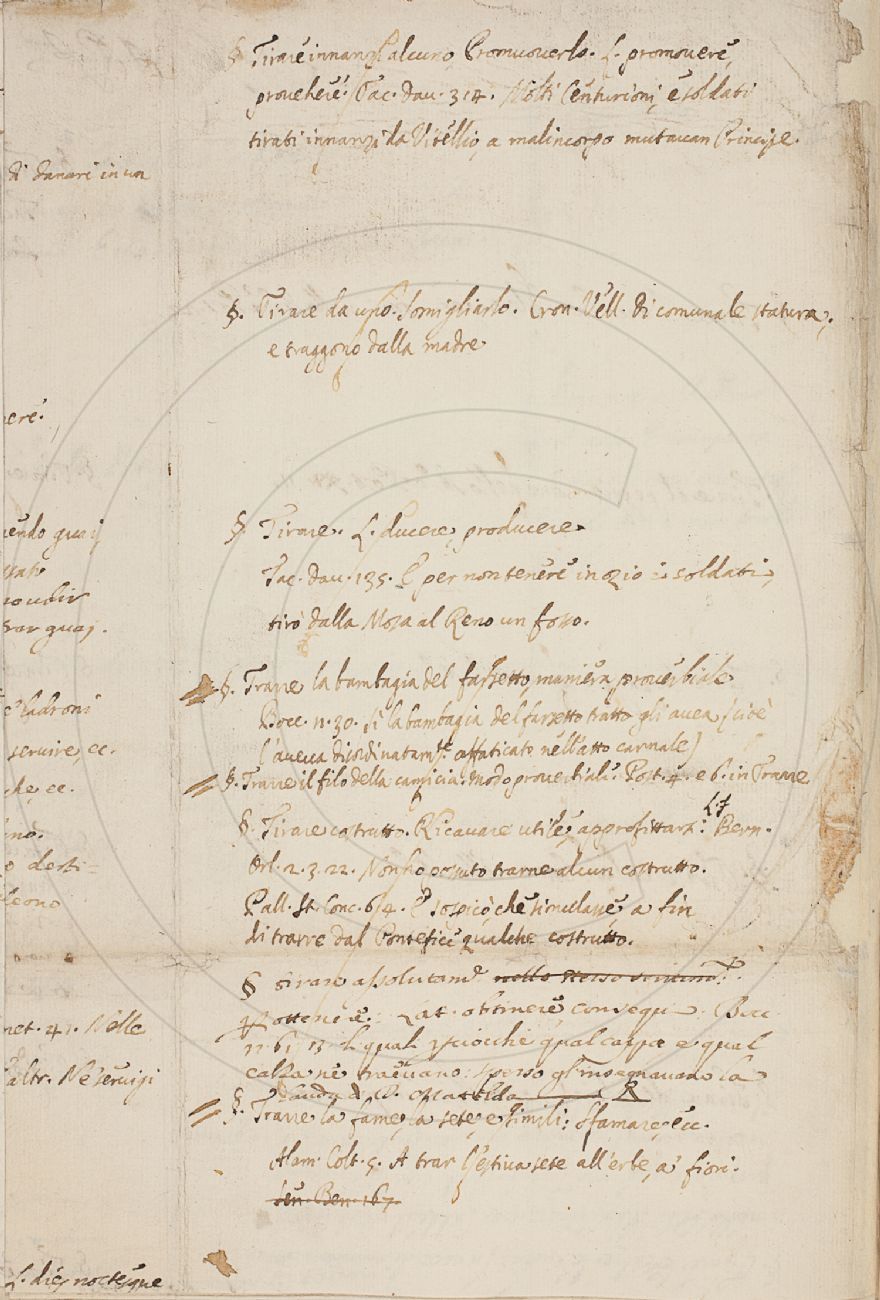 § Tirare innanzi alcuno, Promuoverlo. L. promovere,
provehere. Tac. Dav. 314. Molti Centurioni, e soldati
tirati innanzi da Vitellio, a malincorpo mutavan Principe.
di danari in un
§. Tirare da uno. Somigliarlo. Cron. Vell. Di comunale statura,
e traggono dalla madre.
§. Tirare. L. ducere, producere.
Tac. Dav. 135. E per non tenere in ozio i soldati,
tirò dalla Mosa al Reno un fosso.
§. Trarre la bambagia del farsetto, maniera proverbiale
Bocc. n. 30. sì la bambagia del farsetto tratto gli avea (cioè
l'aveva disordinatamte. affaticato nell'atto carnale)
§. Trarre il filo della camicia: modo proverbiale. Post. 4. e 6. in Trarre
§. Tirare costrutto. Ricavare utile, approfittarsi. Bern.
Orl. 2. 3. 22. Non ho potuto trarne alcun costrutto.
Pall. St. Conc. 614. E sospicò, che simulasse a fin
di trarre dal Pontefice qualche costrutto.
§ tirare assolutame. nello stesso sentim.
p ottenere. Lat. obtinere, consequi. Bocc.
n. 61. 3. quali sciocche qual cappa e qual
calza ne traevano: spesso gl' insegnavano la
lauda d. D. Matelda R
§. Trarre la fame, la sete, e simili: Sfamare, ec.
Alam. Colt. 5. A trar l'estiva sete all'erbe, a' fiori.
Sen. Ben. 167.
nere.
endo guaj
trar guaj.
ladroni
servire, ec.
che, ec.
desti=
leono
met. 41. Nelle
altr. Ne' servigi
L. dies noctesque